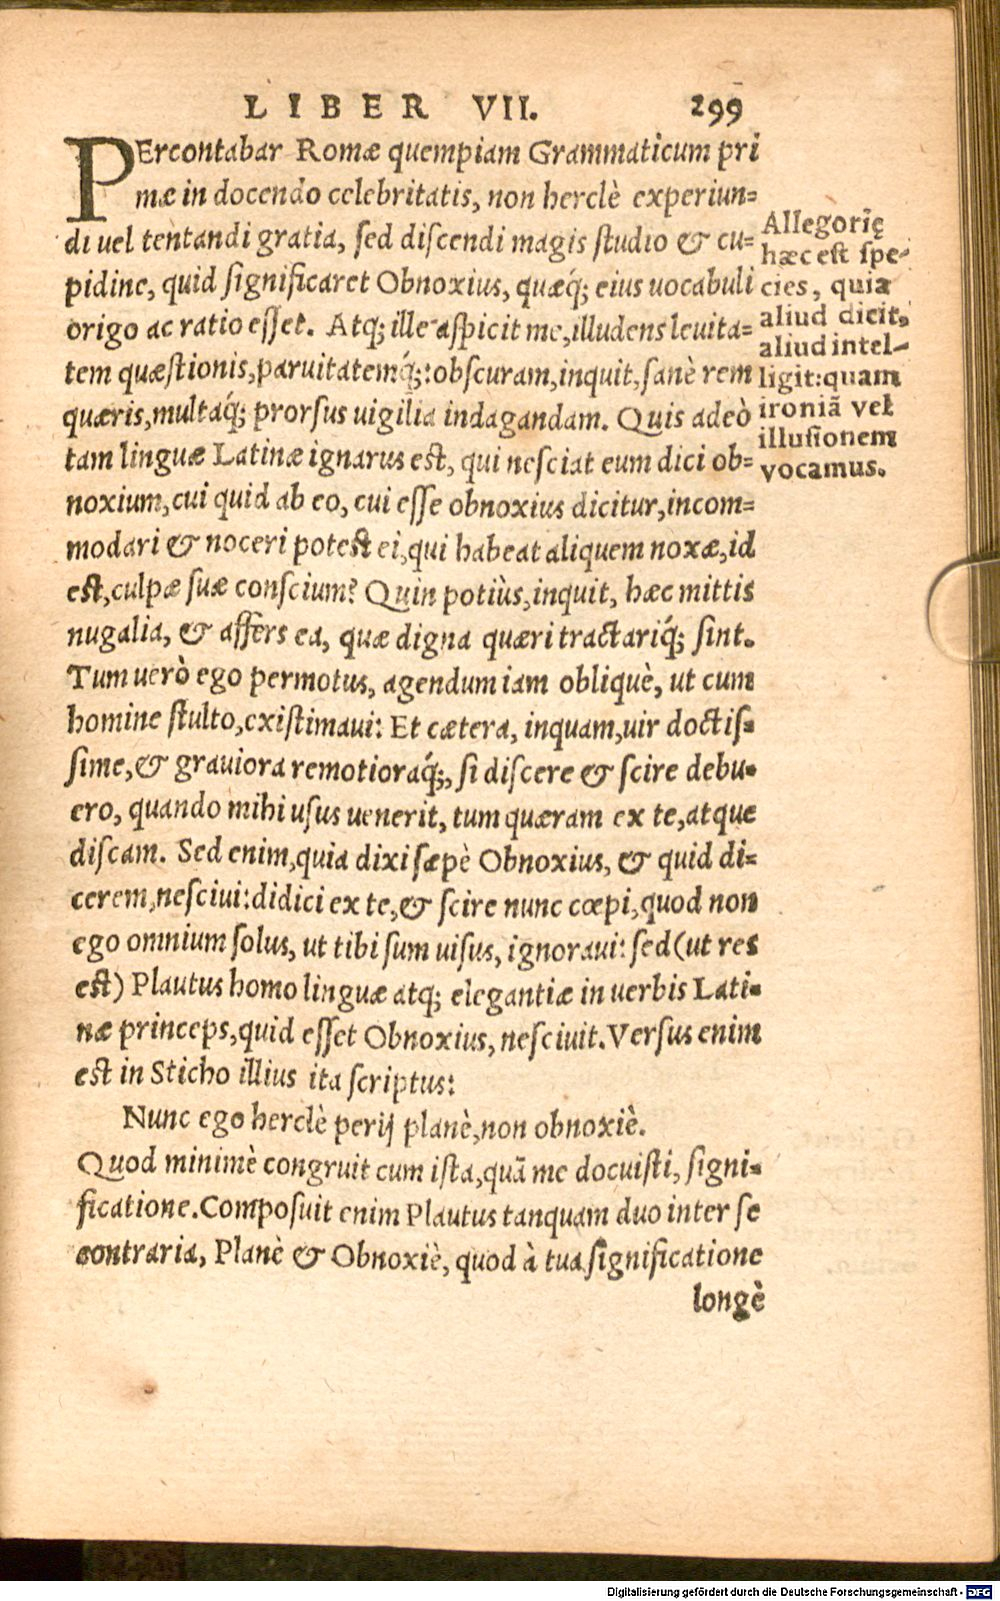 LIBER VII. 299
PErcontabar Romæ quempiam Grammaticum pri
mæ in docendo celebritatis, non herclè experiun=
di uel tentandi gratia, sed discendi magis studio & cu=
pidine, quid significaret Obnoxius, quæq́; eius uocabuli
origo ac ratio esset. Atq; ille aspicit me, illudens leuita=
tem quæstionis, paruitatemq́;: obscuram, inquit, sanè rem
quæris, multaq́; prorsus uigilia indagandam. Quis adeò
tam linguæ Latinæ ignarus est, qui nesciat eum dici ob=
noxium, cui quid ab eo, cui esse obnoxius dicitur, incom=
modari & noceri potest ei, qui habeat aliquem noxæ, id
est, culpæ suæ conscium? Quin potiùs, inquit, hæc mittis
nugalia, & affers ea, quæ digna quæri tractariq́; sint.
Tum uerò ego permotus, agendum iam obliquè, ut cum
homine stulto, existimaui: Et cætera, inquam, uir doctis=
sime, & grauiora remotioraq́;, si discere & scire debu=
ero, quando mihi usus uenerit, tum quæram ex te, atque
discam. Sed enim, quia dixi sæpè Obnoxius, & quid di=
cerem, nesciui: didici ex te, & scire nunc cœpi, quod non
ego omnium solus, ut tibi sum uisus, ignoraui: sed (ut res
est) Plautus homo linguæ atq; elegantiæ in uerbis Lati=
næ princeps, quid esset Obnoxius, nesciuit. Versus enim
est in Sticho illius ita scriptus:
Nunc ego herclè perij planè, non obnoxiè.
Quod minimè congruit cum ista, quã me docuisti, signi=
ficatione. Composuit enim Plautus tanquam duo inter se
contraria, Planè & Obnoxiè, quod à tua significatione
longè
Allegorię
hæc est spe-
cies, quia
aliud dicit,
aliud intel-
ligit: quam
ironiã vel
illusionem
vocamus.
Digitalisierung gefördert durch die Deutsche Forschungsgemeinschaft - DFG